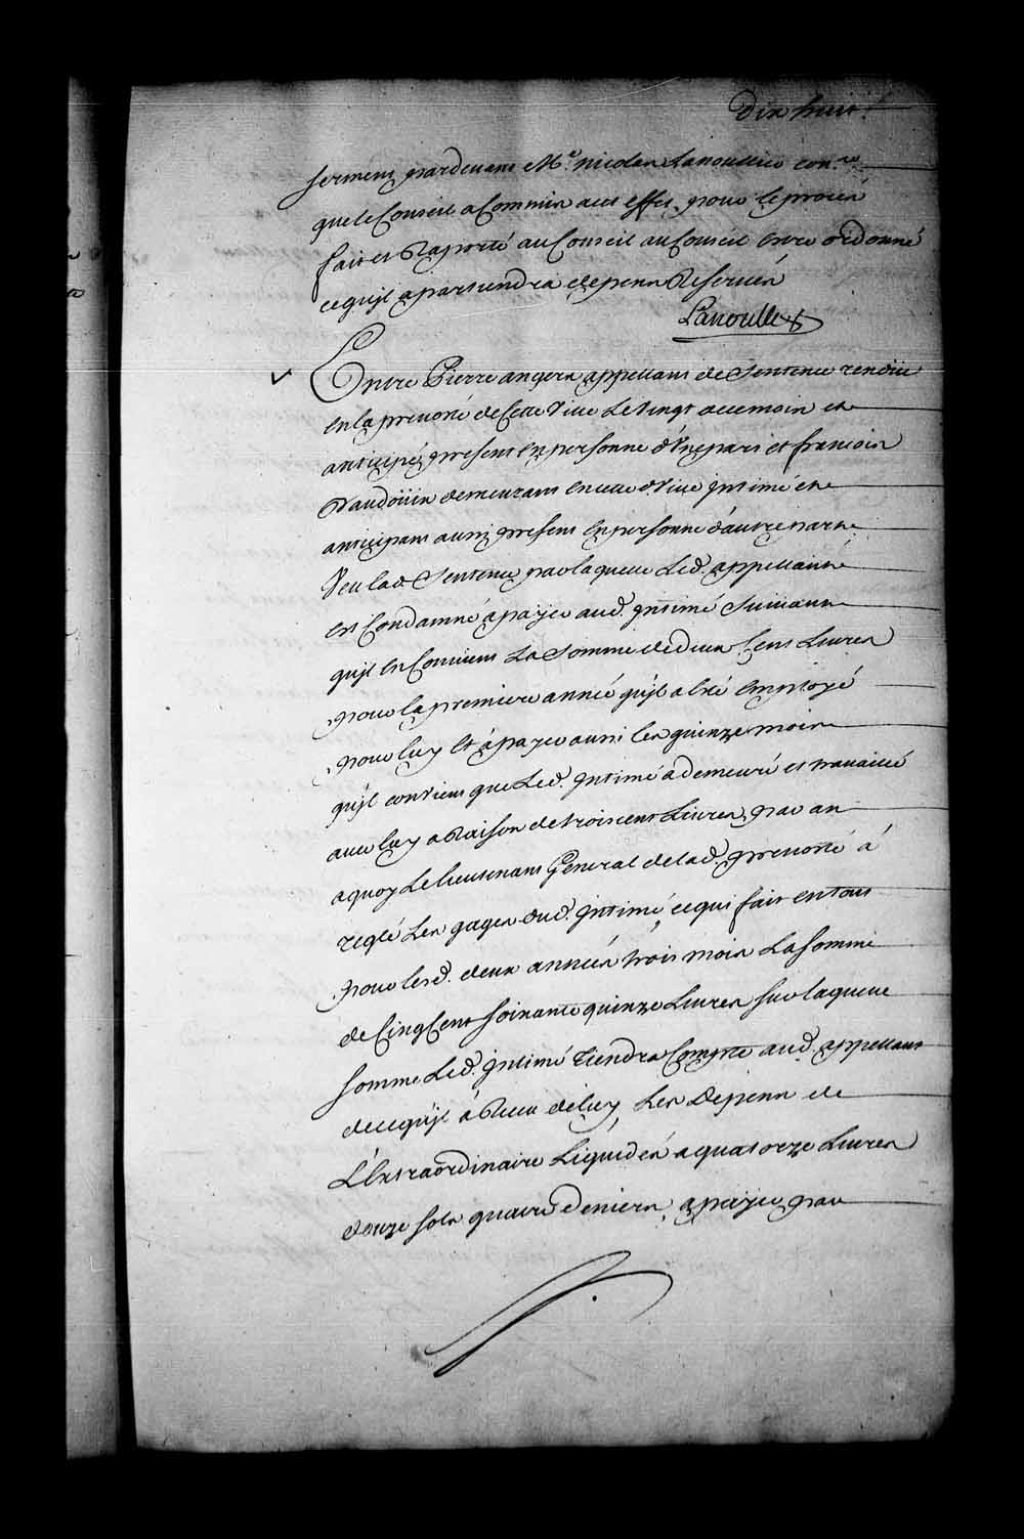 Dix huit.
serment pardevant Me. Nicolas Lanoullier coner.
que le Conseil a Commis a cet effet, pour le procés
fait et Raporté au Conseil au Conseil Etre ordonné
ce qu'jl apartiendra depens Reservés
Lanoullier
Entre Pierre angers appellant de Sentence rendüe
en la prevosté de Cette Ville Le Vingt de ce mois et
anticipé, present En personne d'Une part et francois
Vaudoüin demeurant en cette Ville jntimé et
anticipant aussy present En personne d'autre part
Veu lad. Sentence par laquelle Led. appellant
est Condamné a payer aud. jntimé Suivant
qu'jl En Convient La Somme de deux Cent Livres
pour la premiere année qu'jl a Eté Employé
pour luy Et a payer aussi les quinze mois
qu'jl convient que Led. jntimé a demeuré et travaillé
avec luy a Raison de trois cent Livres par an
a quoy Le lieutenant General de lad. prevosté á
reglé Les gages dud. jntimé, ce qui fait en tout
pour lesd. deux années trois mois La somme
de Cinq Cent soixante quinze Livres sur laquelle
somme Led. jntimé Tiendra Compte aud. appellant
de ce qu'jl á Receu de luy, Les Depens de
L'Extraordinaire Liquidés a quatorze Livres
douze sols quatre deniers, a payer par